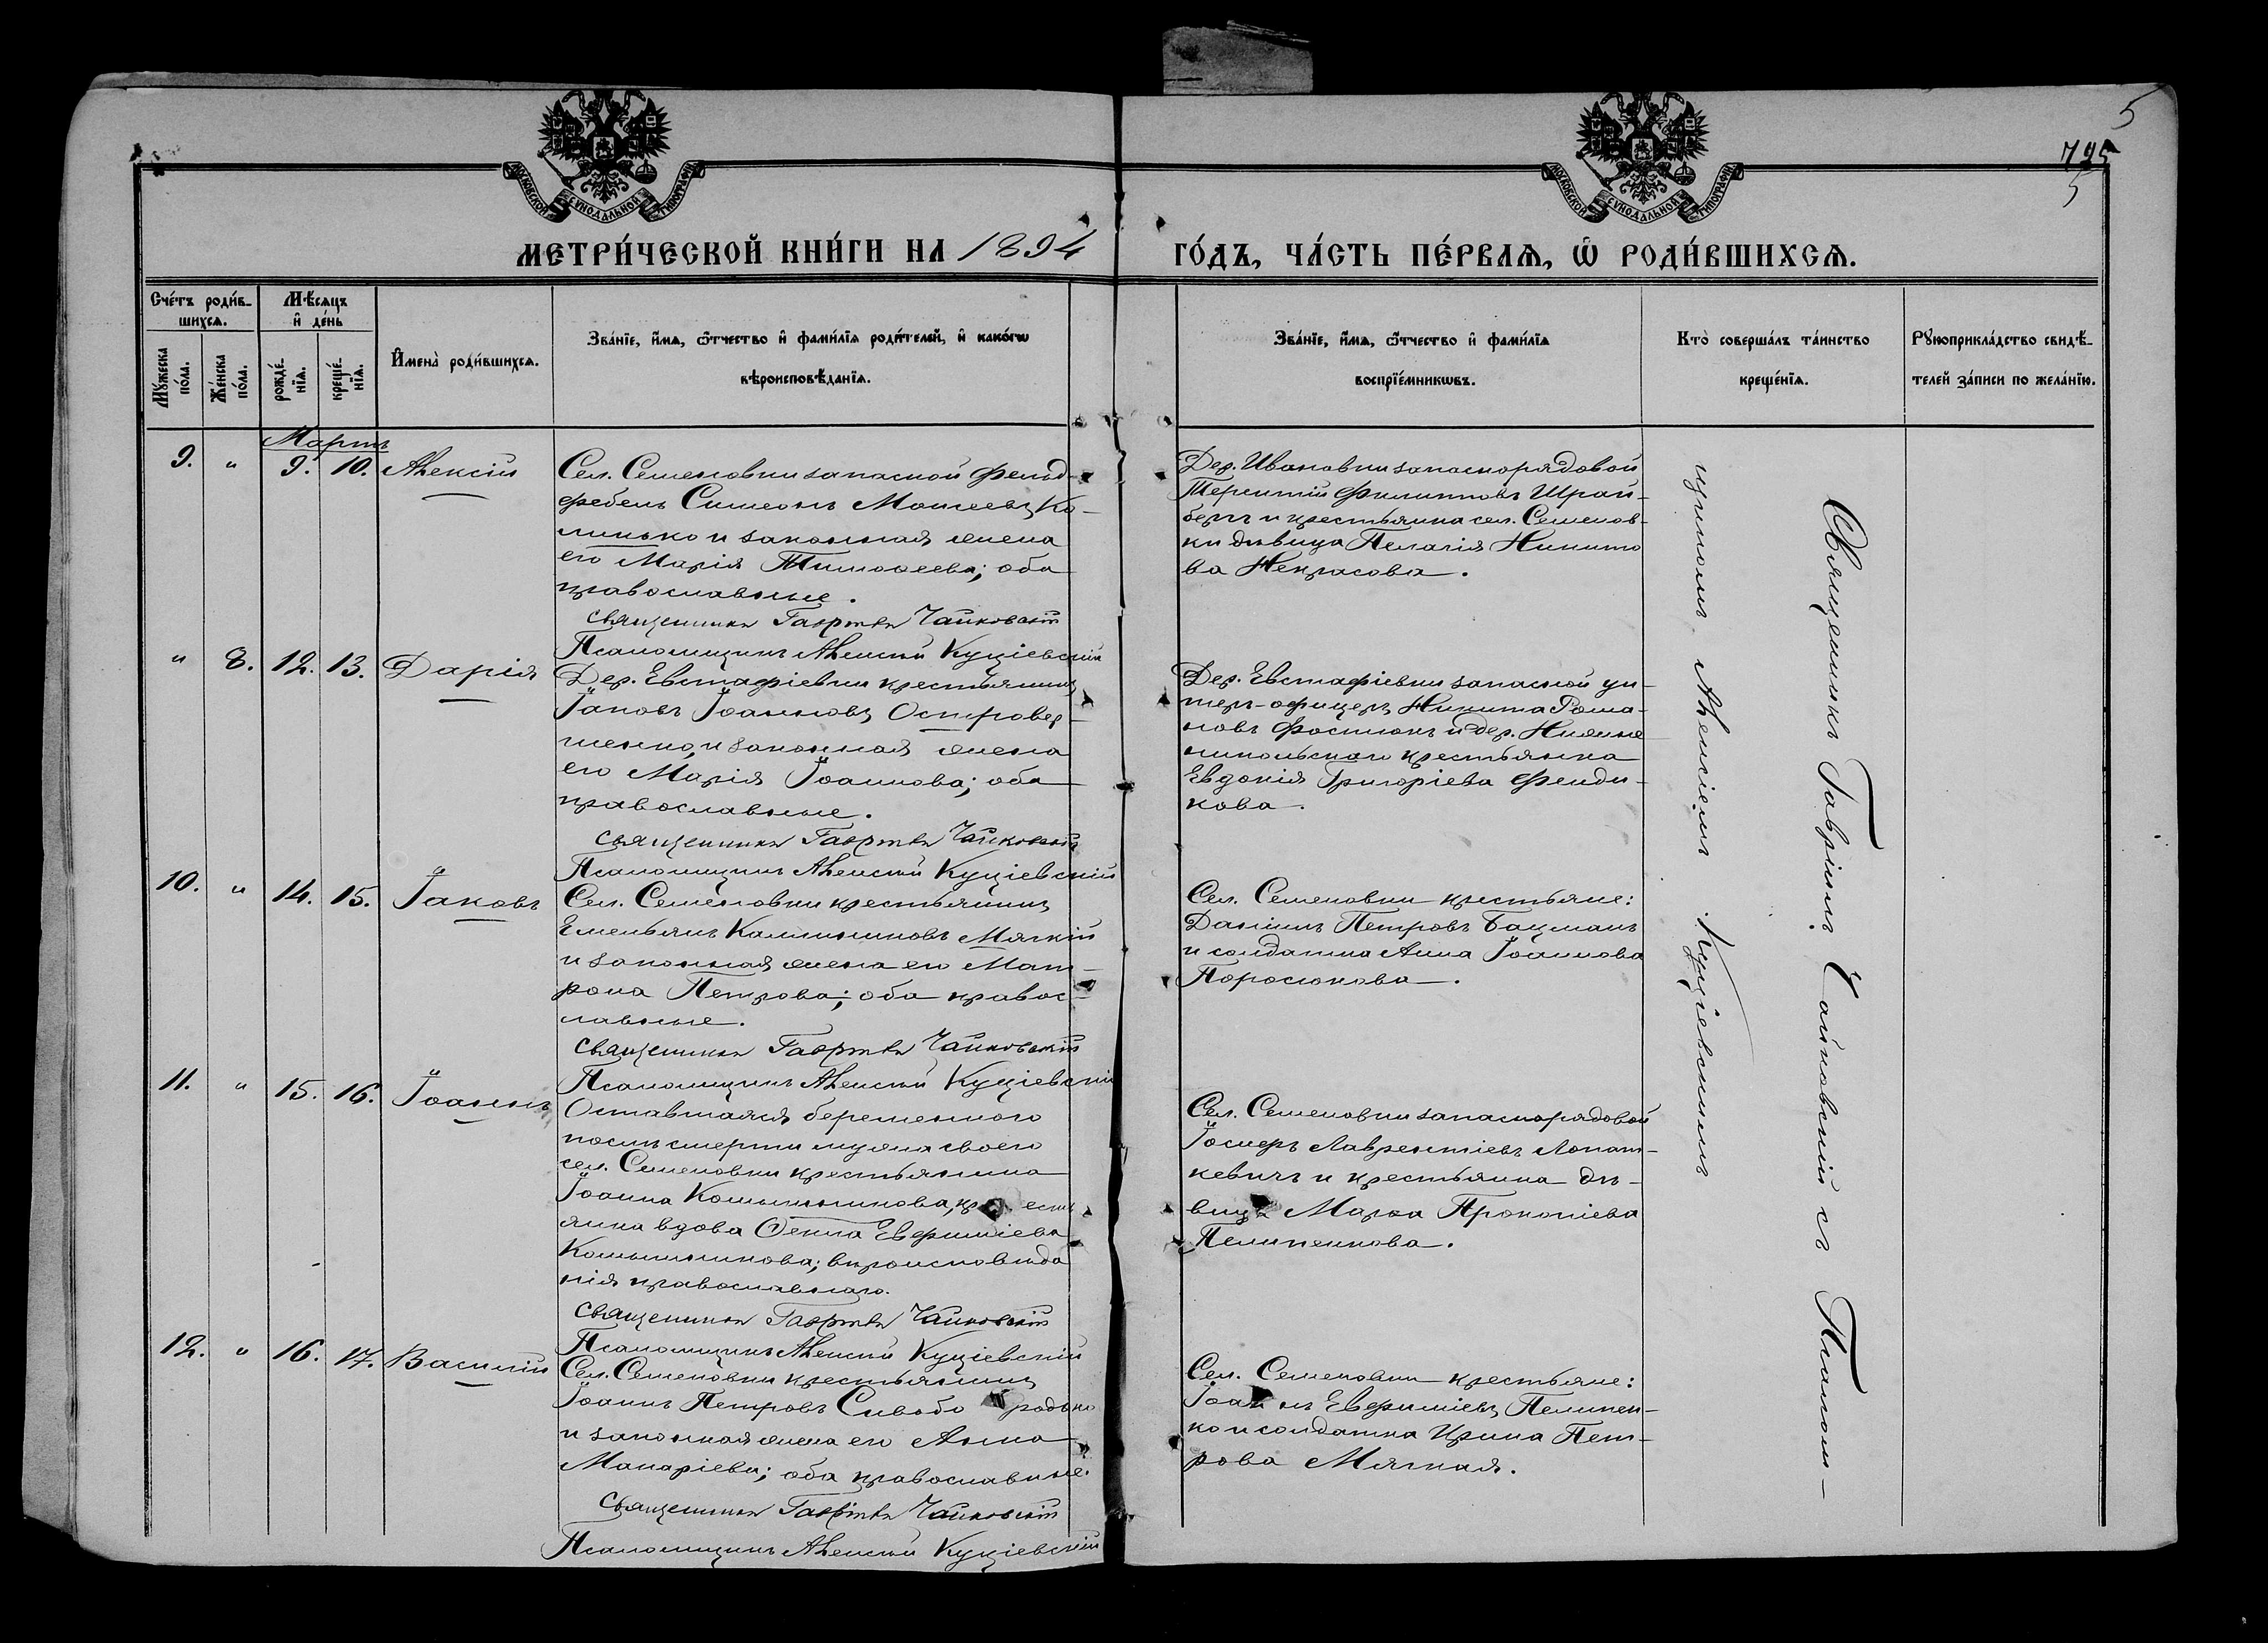 5
795
5
МОСКОВСКОЙ СУНОДАЛЬНОЙ ТИПОГРАФІИ
МОСКОВСКОЙ СУНОДАЛЬНОЙ ТИПОГРАФІИ
МЕТРИ́ЧЕСКОЙ КНИ́ГИ НА 1894 ГО́ДЪ, ЧА́СТЬ ПЕ́РВАѦ, Ѡ҆ РОДИ́ВШИХСѦ.
Сче́тъ роди́в-
шихсѧ.
Мѣ́сѧцъ
и҆ де́нь
Мꙋ́жеска
по́ла.
Же́нска
по́ла.
рожде́-
нїѧ.
креще́-
нїѧ.
И҆мена̀ роди́вшихсѧ.
Зва́нїе, и҆́мѧ, ѻ҆́тчество и҆ фами́лїѧ роди́телей, и҆ како́гѡ
вѣроисповѣ́данїѧ.
Зва́нїе, и҆́мѧ, ѻ҆́тчество и҆ фами́лїѧ
воспрїе́мникѡвъ.
Кто̀ соверша́лъ та́инство
креще́нїѧ.
Рꙋкоприкла́дство свидѣ́-
телей за́писи по жела́нїю.
Мартъ
9. " 9. 10. Алексій
Сел. Семеновки запасной фельд-
фебель Симеонъ Моисеевъ Ко-
линько и законная жена
его Марія Тимоѳеева; оба
православные.
Священникъ Гавріилъ Чайковскій
Псаломщикъ Алексій Куціевскій
Дер. Ивановки запаснорядовой
Терентій Филипповъ Шрай-
беръ и крестьянка сел. Семенов-
ки дѣвица Пелагія Никито
ва Некрасова.
" 8. 12. 13. Дарія
Дер. Евстафіевки крестьянинъ
Іаковъ Іоанновъ Островер-
шенко, и законная жена
его Марія Іоаннова; оба
православные.
Священникъ Гавріилъ Чайковскій
Псаломщикъ Алексій Куціевскій
Дер. Евстафіевки запасной ун-
теръ-офицеръ Никита Рома-
новъ Фостикъ и дер. Нижне
никольскаго крестьянка
Евдокія Григоріева Фенди-
кова.
10. " 14. 15. Іаковъ
Сел. Семеновки крестьянинъ
Емельянъ Каллиниковъ Мягкій
и законная жена его Мат-
рона Петрова; оба правос-
лавные.
Священникъ Гавріилъ Чайковскій
Псаломщикъ Алексій Куціевскій
Сел. Семеновки крестьяне:
Даніилъ Петровъ Бацманъ
и солдатка Анна Іоаннова
Поросюкова.
11. " 15. 16. Іоаннъ
Оставшаяся беременною
послѣ смерти мужа своего
сел. Семеновки крестьянина
Іоанна Колыжникова, крест
янка вдова Ѳекла Евфиміева
Колыжникова; вѣроисповѣда
нія православнаго.
Священникъ Гавріилъ Чайковскій
Псаломщикъ Алексій Куціевскій
Сел. Семеновки запаснорядовой
Іосифъ Лаврентіевъ Лопат-
кевичъ и крестьянка дѣ-
вица Марѳа Прокопіева
Пелипенкова.
12. " 16. 17. Василій
Сел. Семеновки крестьянинъ
Іоаннъ Петровъ Сивобородько
и законная жена его Анна
Макаріева; оба православные.
Священникъ Гавріилъ Чайковскій
Псаломщикъ Алексій Куціевскій
Сел. Семеновки крестьяне:
Іоаннъ Евфиміевъ Пелипен-
ко и солдатка Ирина Пет-
рова Мягкая.
Священникъ Гавріилъ Чайковскій съ Псалом-
щикомъ Алексіемъ Куціевскимъ